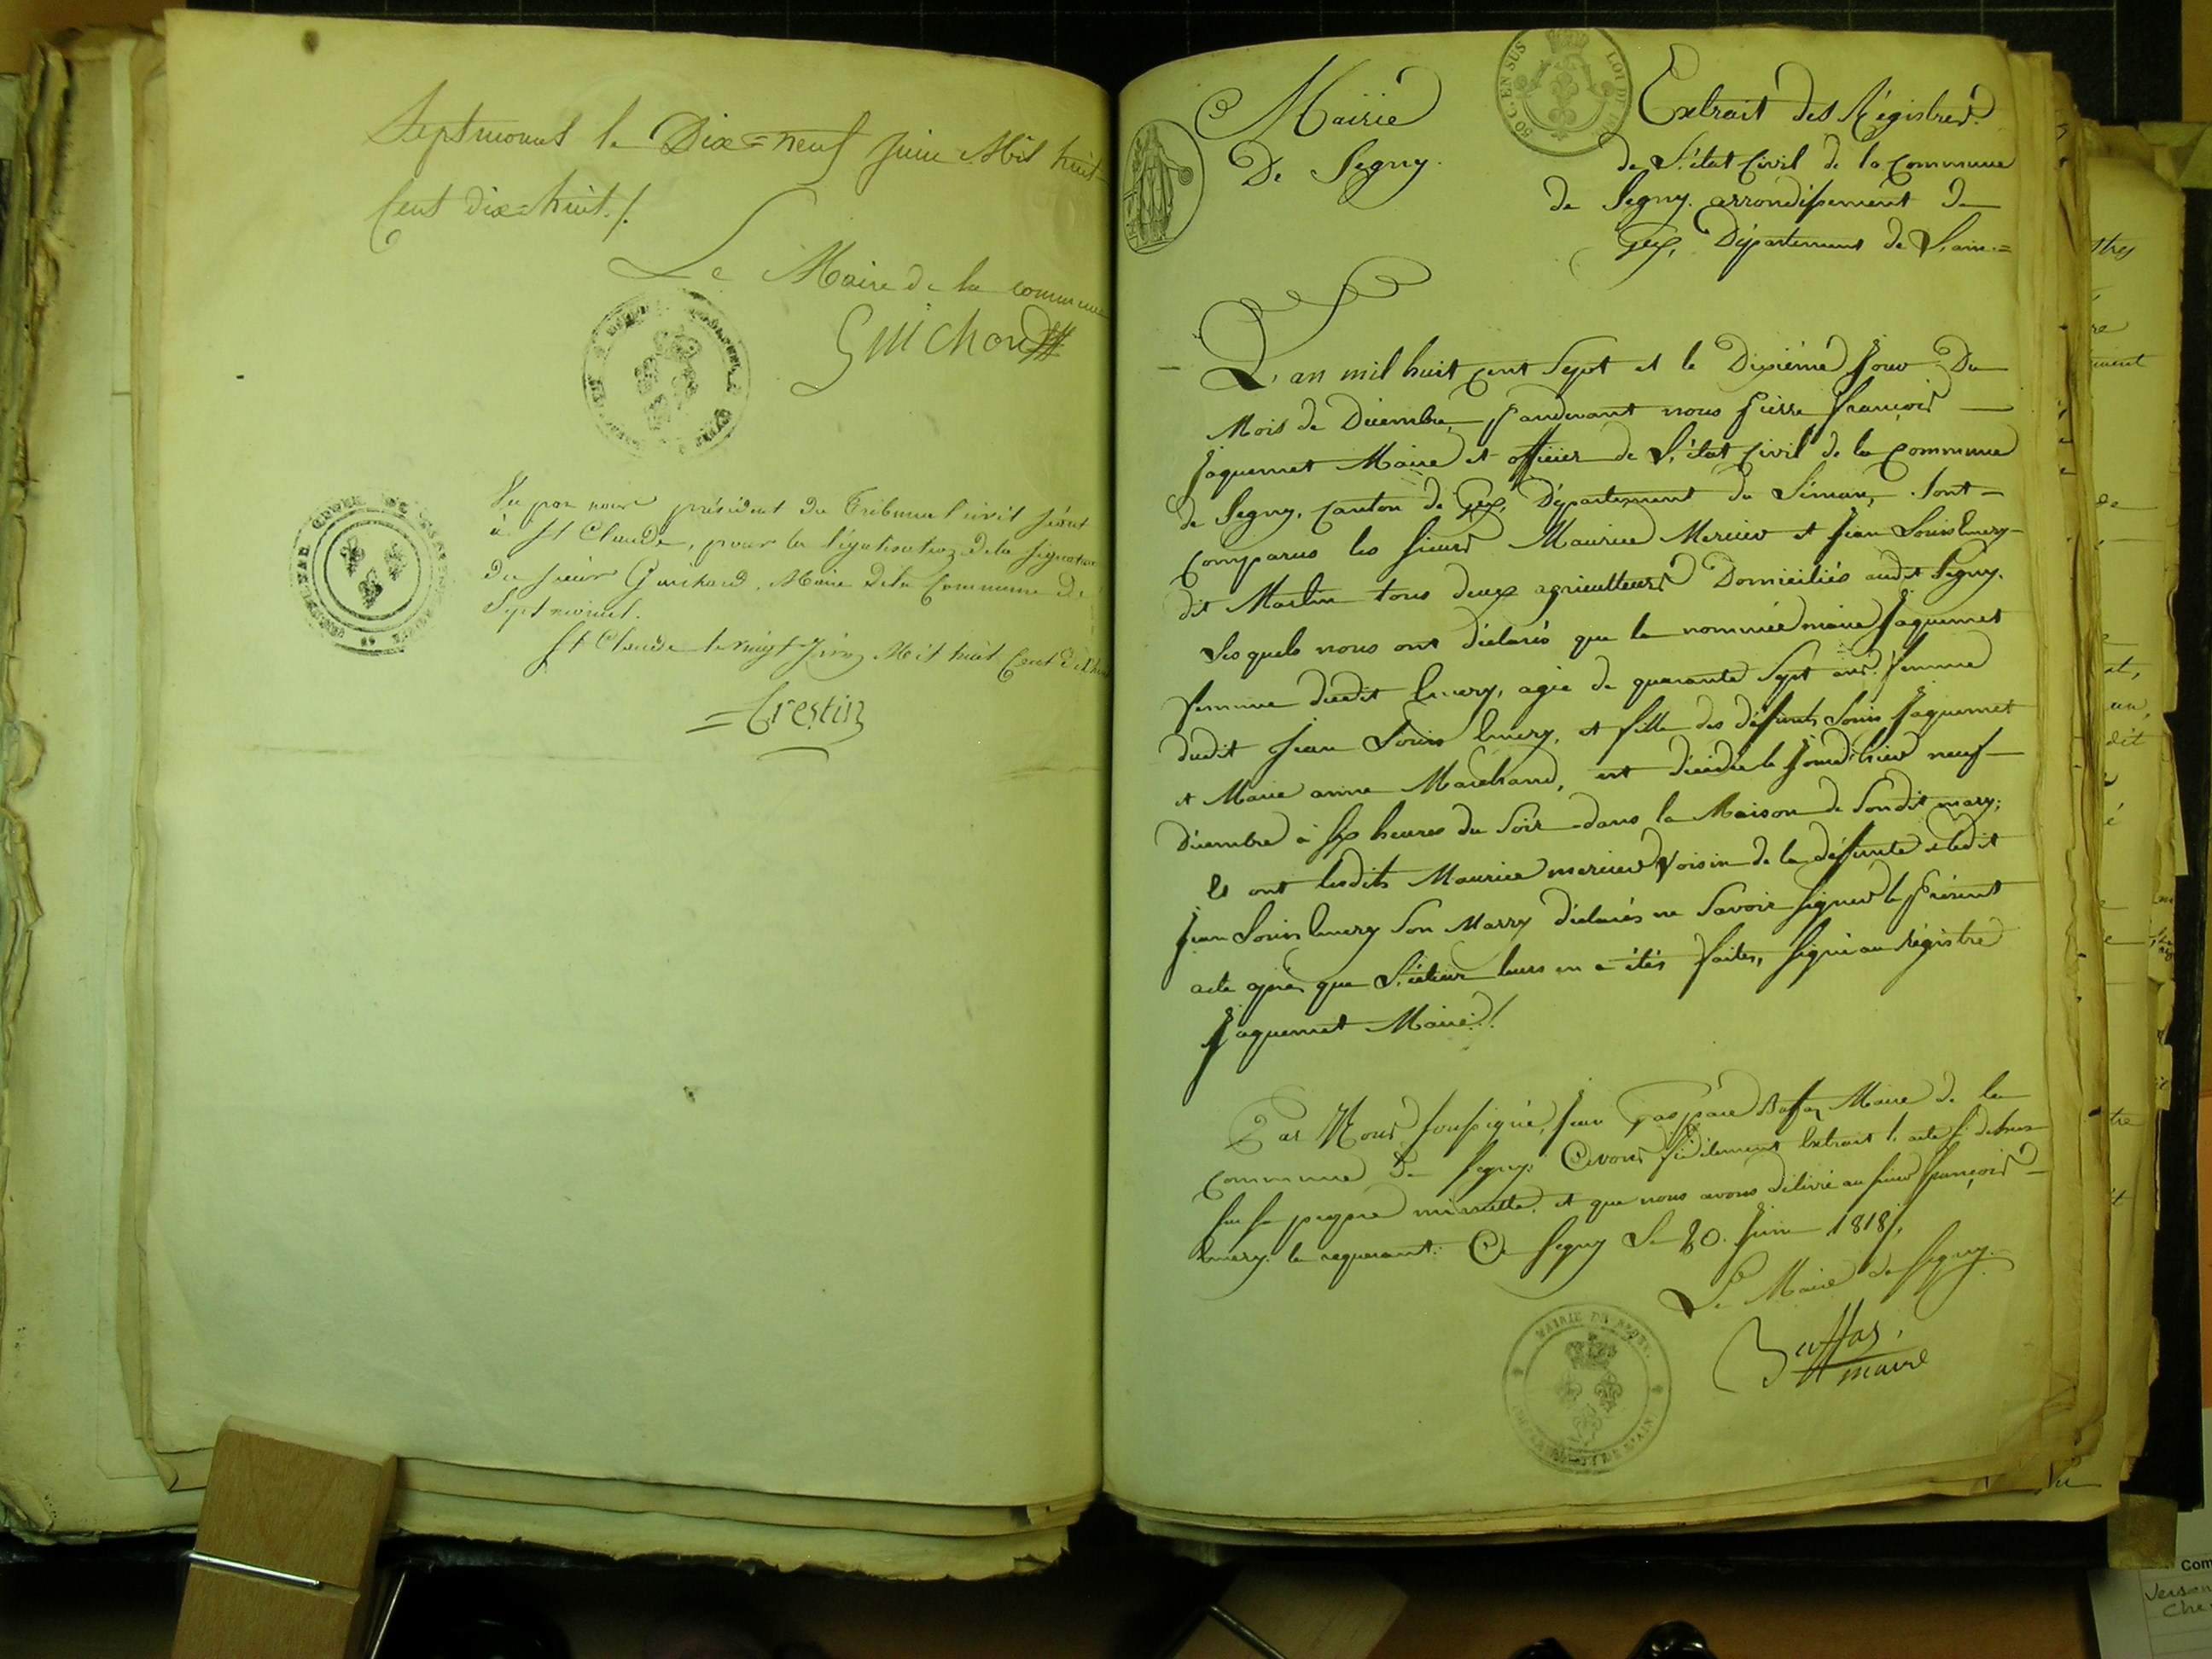 Septmoncel le Dix=neuf juin Mil huit
Cent dix=huit./.
Le Maire de la commune
Guichard
Vu par nous président du Tribunal civil séant
à St Claude, pour la légalisation de la signature
du sieur Guichard, Maire de la Commune de
Septmoncel.
St Claude le vingt juin Mil huit Cent dix huit
=Crestin
Mairie
De Segny.
50 C. EN SUS
Extrait des Régistres
de L'état Civil de la Commune
de Segny. arrondissement de
Gex, Département de L'ain=
L'an mil huit cent Sept et le Dixiéme Jour Du
Mois de Décembre, Pardevant nous Pierre françois
Jaquemet Maire et officier de L'état Civil de la Commune
de Segny, Canton de Gex, Département du Léman, Sont
Comparus les Sieurs Maurice Mercier et Jean Louis Emery
dit Martin tous deux agriculteurs Domiciliés audit Segny.
Lesquels nous ont déclarés que la nommée marie Jaquemet
femme dudit Emery, agée de quarante Sept ans. femme
dudit Jean Louis Emery, et fille des défunts Louis Jaquemet
et Marie anne Marchand, est décédée le Jourd'hier neuf
Décembre à Six heures du Soir dans la Maison de Sondit mary;
Et ont lesdits Maurice mercier Voisin de la défunte et ledit
Jean Louis Emery Son Marry déclarés ne Savoir Signer le Présent
acte après que Lecture leurs en a étés faites, Signé au Régistre
Jaquemet Maire./.
Par Nous Soussigné, Jean Gaspard Maire de la
Commune De Segny. Avons fidèlement Extrait l'acte Ci dessus
Sur Sa propre minutte, et que nous avons délivré au Sieur françois
Emery le requerant. A Segny Le 20. Juin 1818/.
Le Maire de Segny.
maire
MAIRIE DE SEGNY.